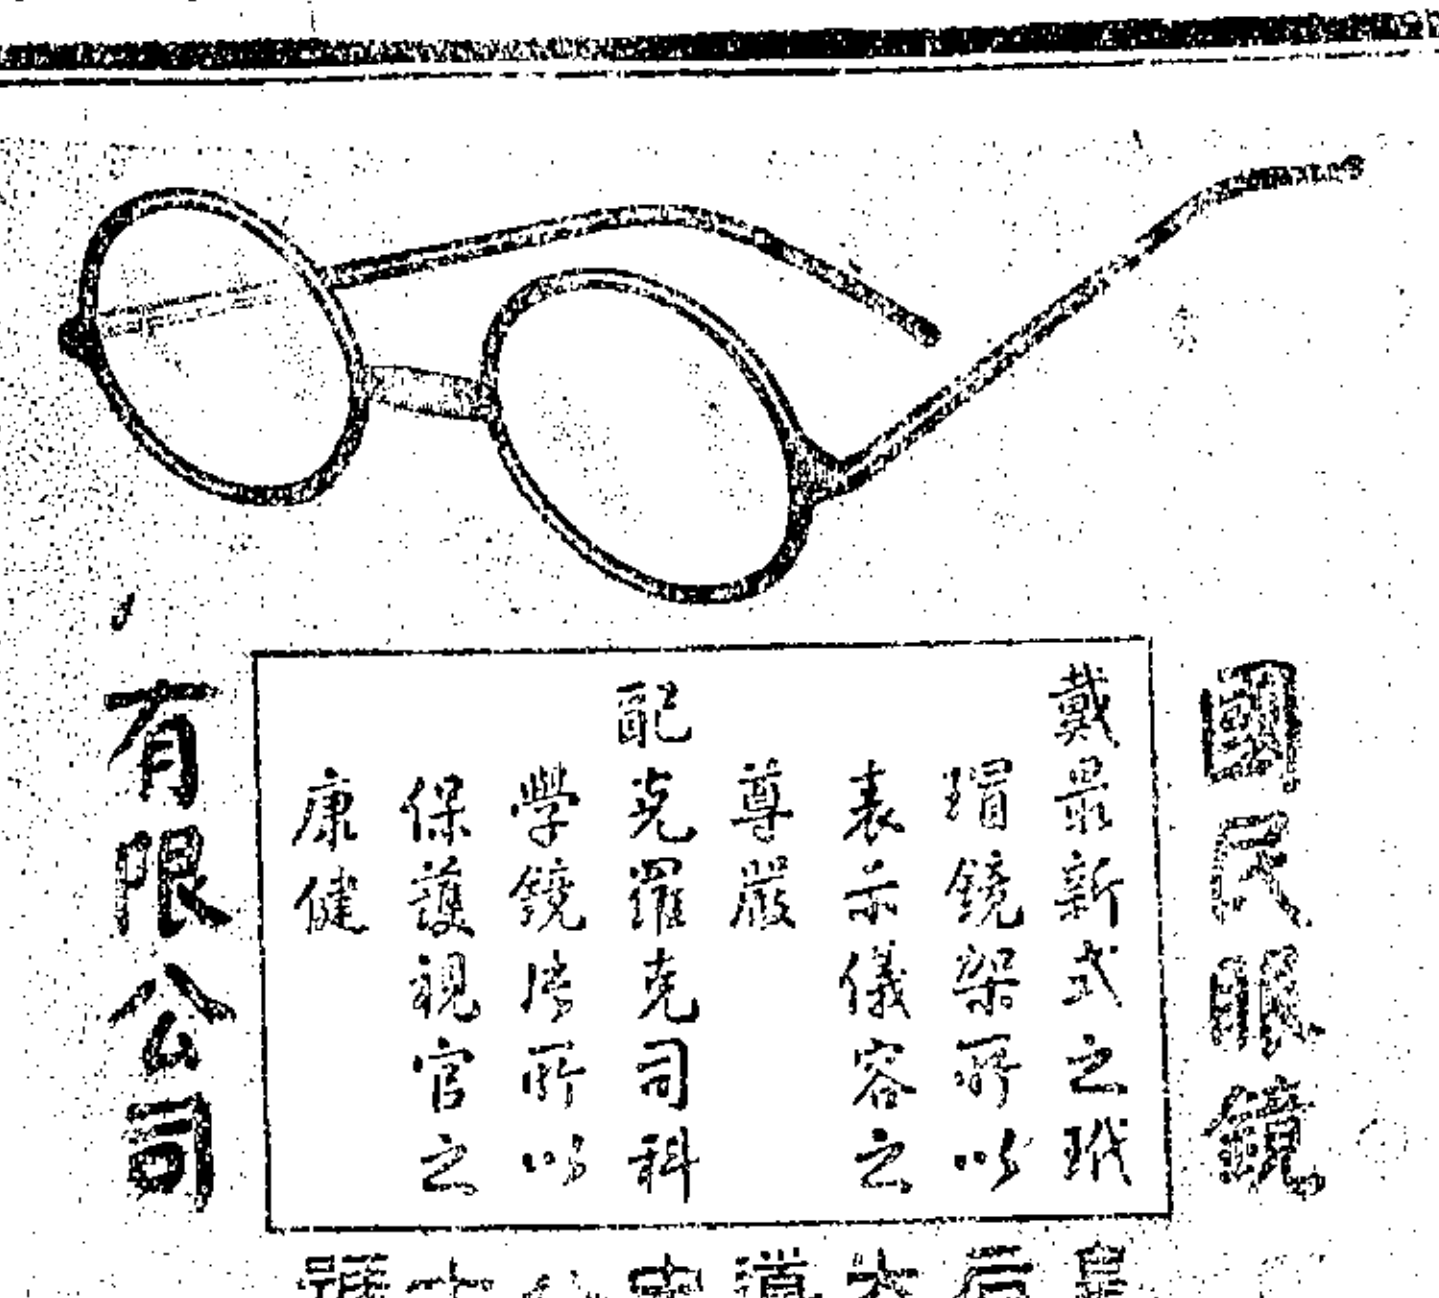 國民眼鏡
戴最新式之玳
瑁鏡架所以
表示儀容之
尊嚴
配克羅克司科
學鏡片所以
保護視官之
康健
有限公司
皇后大道中